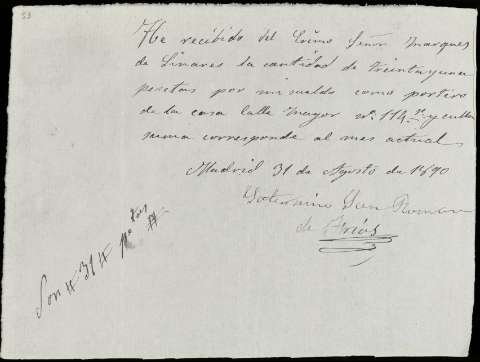 53
He recibido del Exmo Señor Marques
de Linares la cantidad de treinta y una
pesetas por mi sueldo como portero
de la casa Calle Mayor nº. 114 y cuya
suma corresponde al mes actual
Madrid 31 de Agosto de 1890
San Roman
de Arias
Son # 31 # ptas #